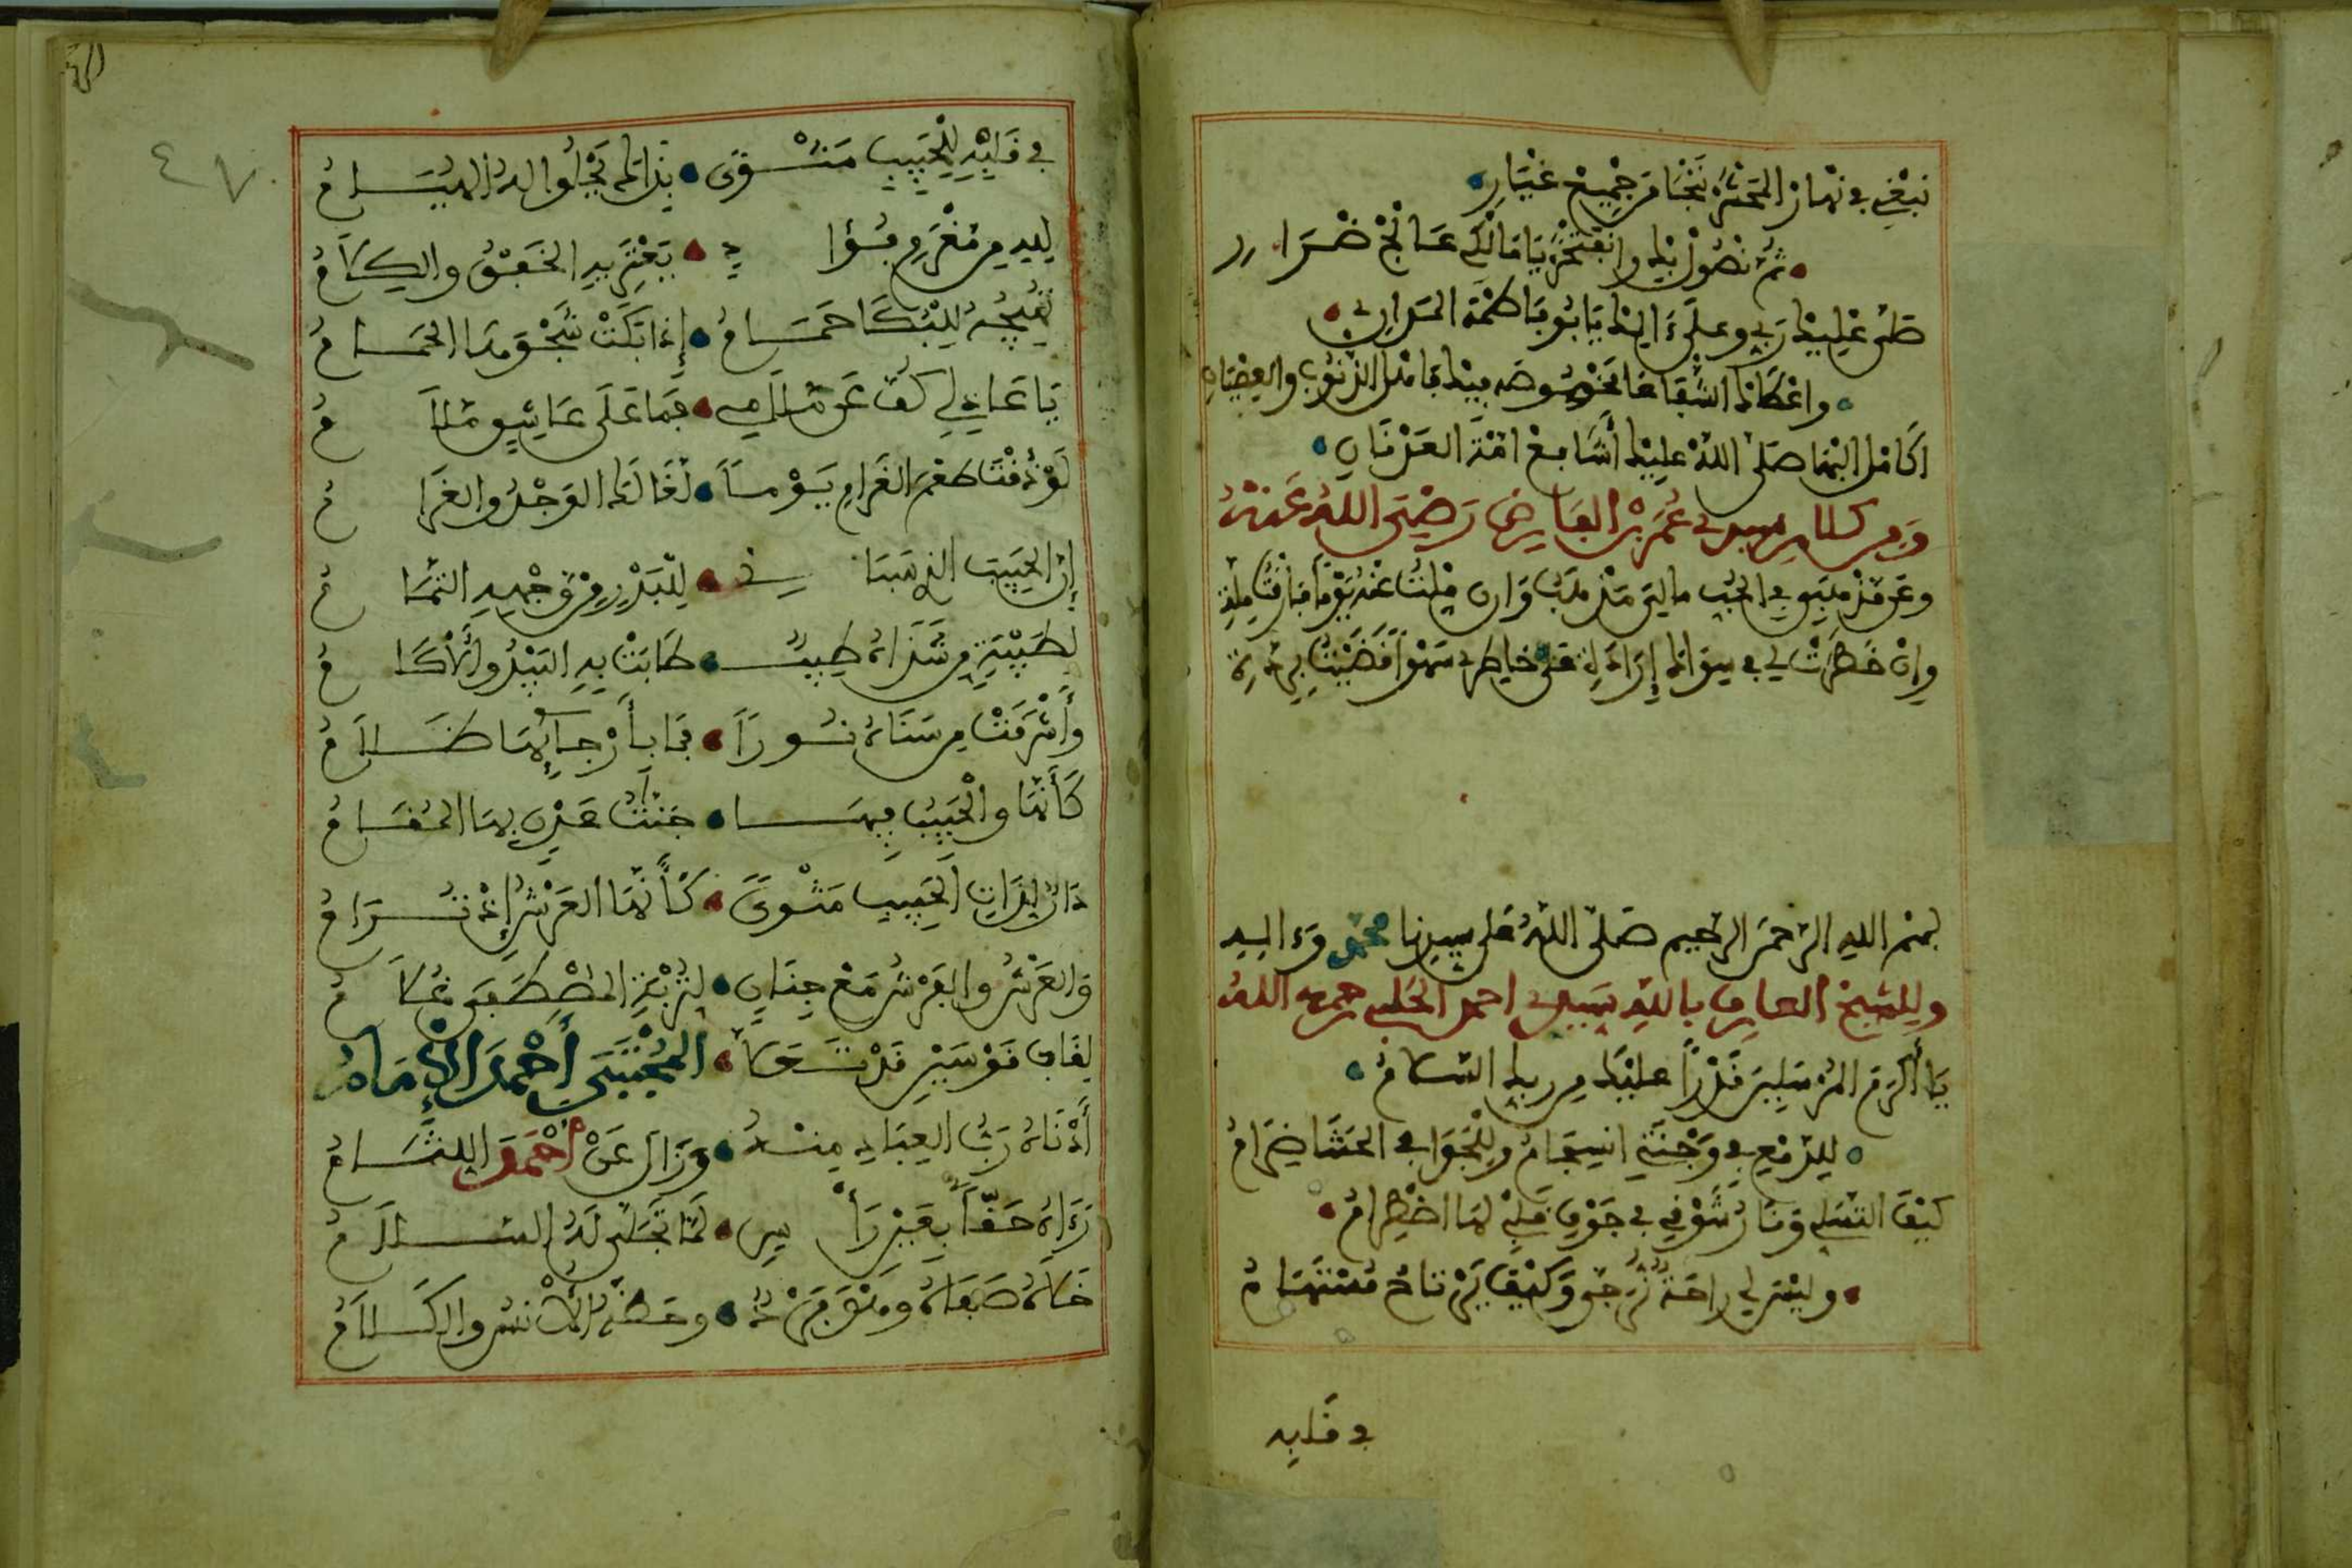 نبغي في نهار الحشر ننجا من جميع غيار
ثم نصول بيك وانفتخر يا مالكي
صلى عليك ربي وعلى ءاليك يا بو فاطمة
واعطاك الشفاعا مخصوصه بيك فامثل الذنوب والعصيان
اكامل البها صلى الله عليك أشافع امة العدنان
ومن كلام سيدي عمر بن الفارض رضي الله عنه
وعن مذهبي في الحب مالي مذهب وان ملت عنه يوما فارقت ملتي
وإن خطرت لي في سواك إرادة على خاطري سهوا قضيت بردتي
بسم الله الرحمن الرحيم صلى الله على سيدنا محمد وءاله
وللشيخ العارف بالله سيدي احمد الحلبي رحمه الله
يا أكرم المرسلين قدرا عليك من ربك السلام
للدمع في وجنتي انسجام وللجوا في الحشا ضرام
كيف التسلي ونار شوقي في جوف قلبي لها اضطرام
وليس لي راحة نرجو وكيف يرتاح مستهام
في قلبه
٤٧
في قلبه للحبيب مشوى بذاك يحلوا له الهيام
لله من مغرم فؤاد يعتريه الخفق والكلام
تهيجه للبكا حمام إذا بكت شجوها الحمام
يا عاذلي كف عن ملامي فما على عاشيق ملام
لو ذقت طعم الغرام يوما لغالك الوجد والغرام
إن الحبيب الذي سباني للبدر من وجهه التمام
بطيبة من شذاه طيب طابت به البيد والأكام
وأشرقت من سناه نورا فما بأرجائها ظلام
كأنها والحبيب فيها جنت عدن بها المقام
دار لذات الحبيب مثوى كأنها العرش إذ ترام
والعرش والفرش مع جنان لتربة المصطفى غلام
لقاب قوسين قد تسمى المجتبى أحمد الإمام
أدناه رب العباد منه وزال عن أحمد اللثام
رءاه حقا بعين رأس لما تجلى له السلام
خلاه صفاه ومن قربه وحظه الأنس والكلام